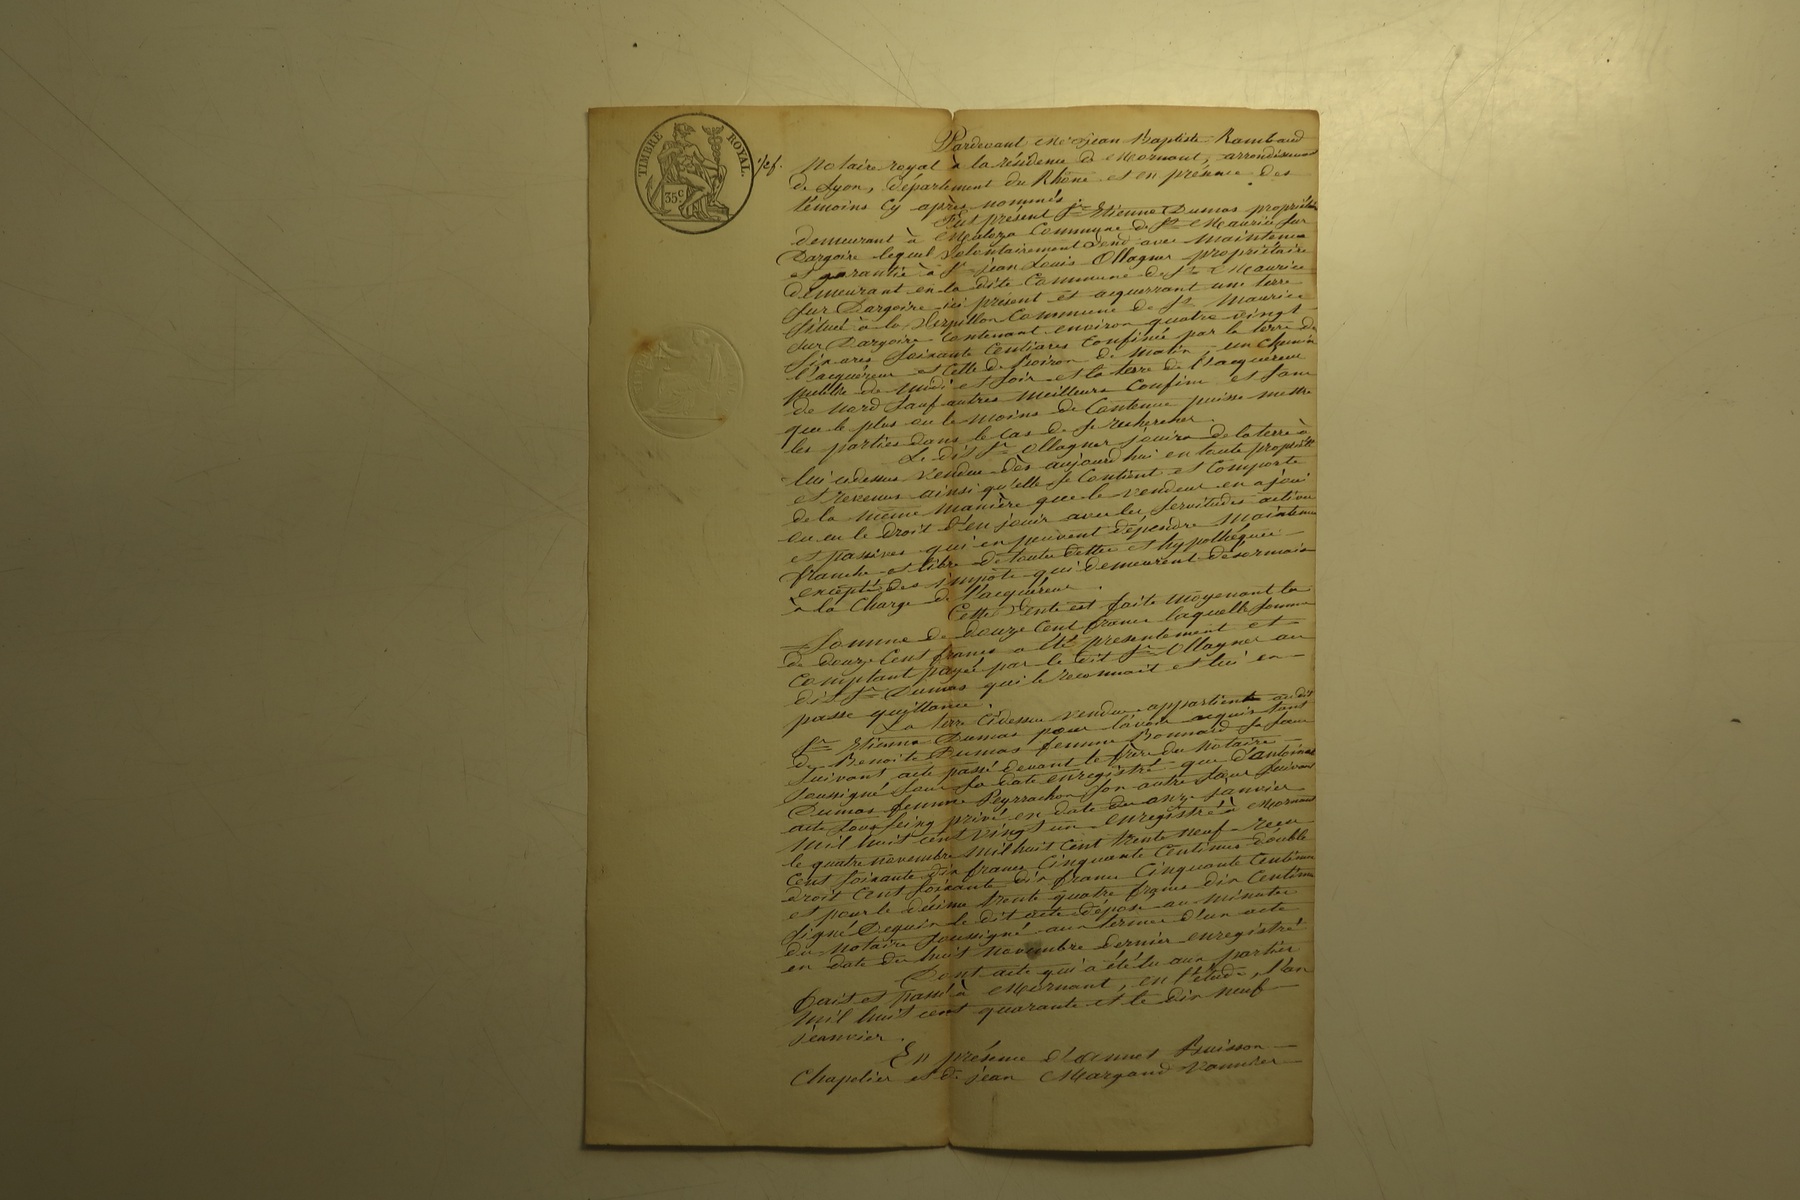 TIMBRE ROYAL.
35c
Pardevant Me Jean Baptiste Rambaud
Notaire royal à la résidence de Mornant, arrondissement
de Lyon, département du Rhône et en présence des
témoins cy après nommés
fut présent Sr Etienne Dumas propriétaire
demeurant à Commune de St Maurice sur
Dargoire lequel volontairement vend avec maintenue
et garantie à Sr jean Louis Ollagner propriétaire
demeurant en la dite Commune de St Maurice
sur Dargoire ici présent et acquerrant une terre
située à la Commune de St Maurice
sur Dargoire Contenant environ quatre vingt
six ares soixante Centiares Confinée par la terre de
l'acquéreur et celle de de matin un chemin
publie de midi et soir et la terre de l'acquéreur
de nord sauf autres meilleurs Confins et sans
que le plus ou le moins de Contenue puisse mettre
les parties dans le Cas de se rechercher.
Le dit Sr Ollagner jouira de la terre à
lui cidessus vendue dès aujourd'hui en toute propriété
et revenus ainsi qu'elle se Contient et Comporte
de la même manière que le vendeur en a joui
ou eu le droit d'en jouir avec les servitudes actives
et passives qui en peuvent dépendre maintenue
franche et libre de toutes dettes et hypothèques
excepté des impôts qui demeurent désormais
à la Charge de l'acquéreur.
Cette vente est faite moyenant la
Somme de douze Cent francs laquelle somme
de douze Cent francs a été présentement et
Comptant payée par le dit Sr Ollagner au
dit Sr Dumas qui le reconnait et lui en
passe quittance.
La terre cidessus vendue appartient au dit
Sr Etienne Dumas pour l'avoir acquis tant
de Benoite Dumas femme Bonnard sa sœur
suivant acte passé devant le frère du notaire
soussigné sous sa date enregistré que d'antoinette
Dumas femme Peyrrachon son autre sœur suivant
acte sous seing privé en date du onze janvier
mil huit cent vingt un enregistré à Mornant
le quatre novembre mil huit cent trente neuf recu
cent soixante dix francs Cinquante Centimes double
droit Cent soixante dix francs Cinquante Centimes
et pour le décime trente quatre francs dix Centimes
signé Dequin le dit acte déposé au minutes
du notaire soussigné aux termes d'un acte
en date du huit novembre dernier enregistré
Dont acte qui a été lu aux parties
fait et passé à Mornant, en l'étude, l'an
mil huit cent quarante et le dix neuf
jeanvier.
En présence d'annet Buisson
Chapelier et de jean Margand Vannier